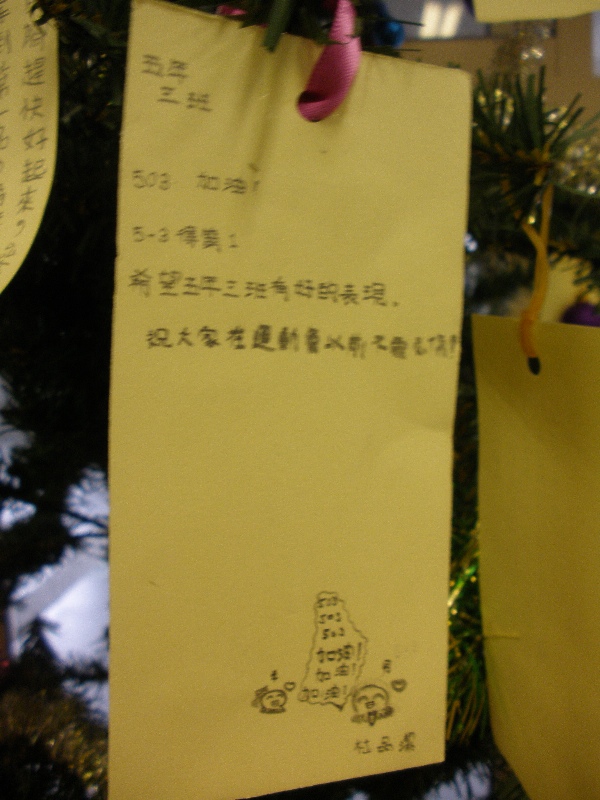 五年
三班
503 加油!
5-3得獎1
希望五年三班有好的表現。
祝大家在運動會以前不要受傷!
503
503
503
加油!
加油!
加油!
腳趕快好起來,